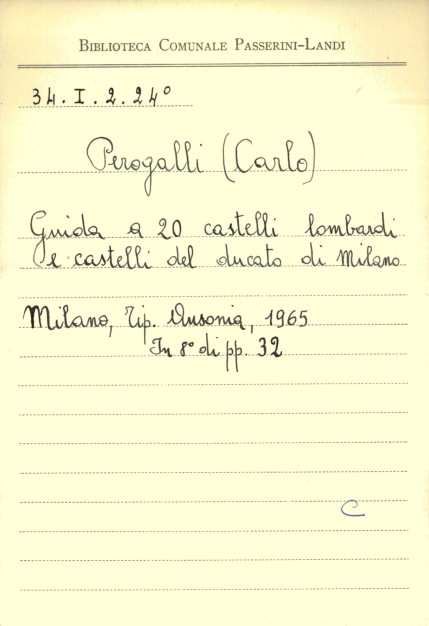 BIBLIOTECA COMUNALE PASSERINI-LANDI
34. I. 2. 24°
Perogalli (Carlo)
Guida a 20 castelli lombardi
e castelli del ducato di Milano
Milano, Tip. Ausonia, 1965
In 8° di pp. 32
C